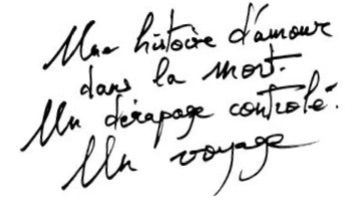 Une histoire d'amour
dans la mort.
Un dérapage contrôlé.
Un voyage